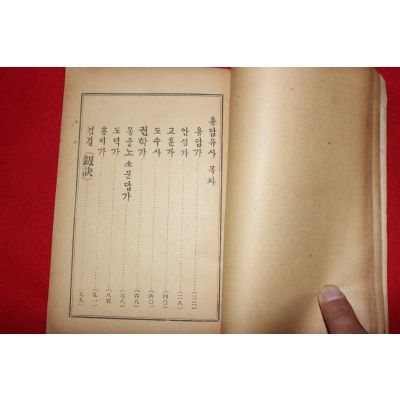 용담유사 목차
용담가 (二二)
안심가 (二八)
교훈가 (四〇)
도수사 (六〇)
권학가 (六八)
몽중노소문답가 (七八)
도덕가 (八五)
흥비가 (九一)
검결 (劍訣) (九九)